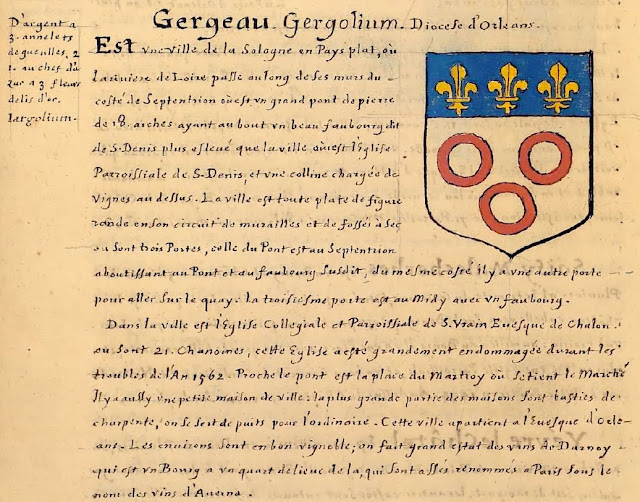 Gergeau Gergolium. Diocese d'Orleans.
D'argent a
3. annelets
de gueulles. 2
1. au chef d'a
zur a 3 fleur
delis d'or.
Iargolium.
Est vne ville de la Sologne en Pays plat, ou
la riuiere de Loire passe au long de ses murs du
costé de Septentrion ou est vn grand pont de pierre
de 18. arches ayant au bout vn beau faubourg dit
de S. Denis plus esleué que la ville ou est l'Eglise
Parroissiale de S. Denis, et vne colline chargée de
vignes au dessus. La ville est toute plate de figure
ronde en son circuit de murailles et de fossés à sec
ou sont trois Portes, celle du Pont est au Septentrion
aboutissant au Pont et au faubourg susdit, du mesme costé il y a vne autre porte
pour aller sur le quay. la troisiesme porte est au Midy auec vn faubourg.
Dans la ville est l'Eglise Collegiale et Parroissiale de S. Vrain Euesque de Chalon.
ou sont 21. Chanoines, cette Eglise a esté grandement endommagée durant les
troubles de l'An 1562. Proche le pont est la place du Martroy ou se tient le Marché
Il y a aussy vne petite maison de ville. la plus grande partie des maisons sont basties de
charpente, on se sert de puits pour l'ordinaire. Cette ville apartient a l'Euesque d'Orle-
ans. Les enuirons sont en bon vignoble, on fait grand estat des vins de Darnoy
qui est vn Bourg a vn quart de lieue de la, qui sont assés renommés a Paris sous le
nom des vins d'Auerna.